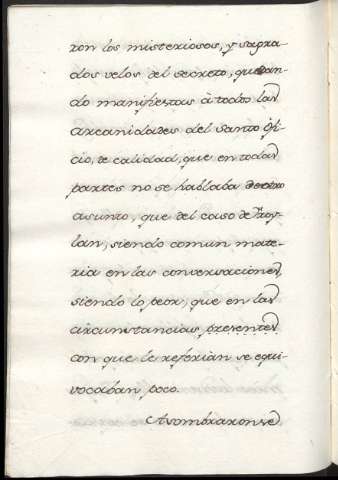 ron los misteriosos, y sagra-
dos velos del secreto, quedan-
do manifiestas à todos las
arcanidades del Santo Ofi-
cio, de calidad, que en todas
partes no se hablaba de otro
asunto, que del caso de Froy-
lan, siendo comun mate-
ria en las conversaciones,
siendo lo peor, que en las
circunstancias presentes
con que le referian se equi-
vocaban poco.
Asombraronse